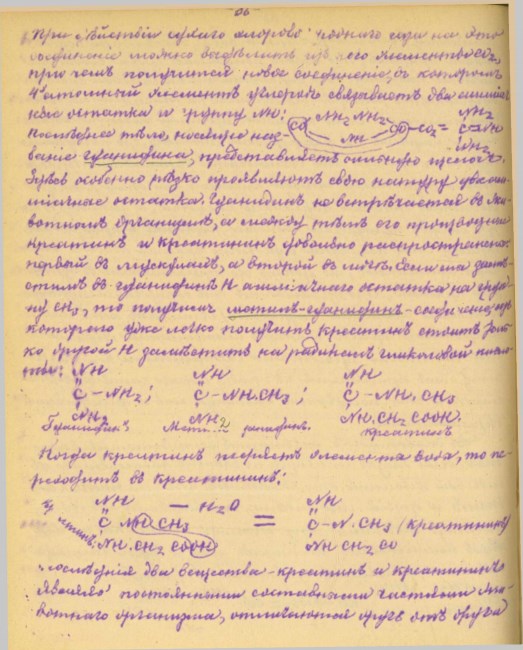 - 56 -
При действіи сухого хлороводнаго газа на это
соединеніе можно выделить изъ него элементы CO2,
при чемъ получится новое соединеніе, въ которомъ
4х атомный элементъ углеродъ связываетъ два амміач-
ные остатка и группу NH:
CO NH2 NH2 CO - CO2 = NH2
NH C=NH
NH2
Последнее тело, носящее наз-
ваніе гуанидина, представляетъ сильную щелочь.
Здесь особенно резко проявляютъ свою натуру два ам-
міачные остатка. Гуанидинъ не встречается въ жи-
вотномъ организме, а между темъ его производные
креатинъ и креатининъ довольно распространены:
первый въ мускулахъ, а второй въ моче. Если мы заме-
стимъ въ гуанидине H амміачнаго остатка на груп-
пу CH3, то получимъ метилъ-гуанидинъ - соединеніе, изъ
котораго уже легко получить креатинъ стоитъ толь-
ко другой H заместить на радикалъ гликоловой кисло-
ты:
NH NH NH
C - NH2; C - NH.CH3; C - NH.CH3
NH2 NH2 NH.CH2 COOH.
Гуанидинъ. Метилъ гуанидинъ. Креатинъ
Когда креатинъ теряетъ элементы воды, то пе-
реходитъ въ креатининъ:
NH - H2O NH
C NH CH3 = C - N.CH3 (креатининъ)
NH.CH2 COOH NH CH2 CO
Последнія два вещества - креатинъ и креатининъ
являясь постоянными составными частями жи-
вотнаго организма, отличаются другъ отъ друга